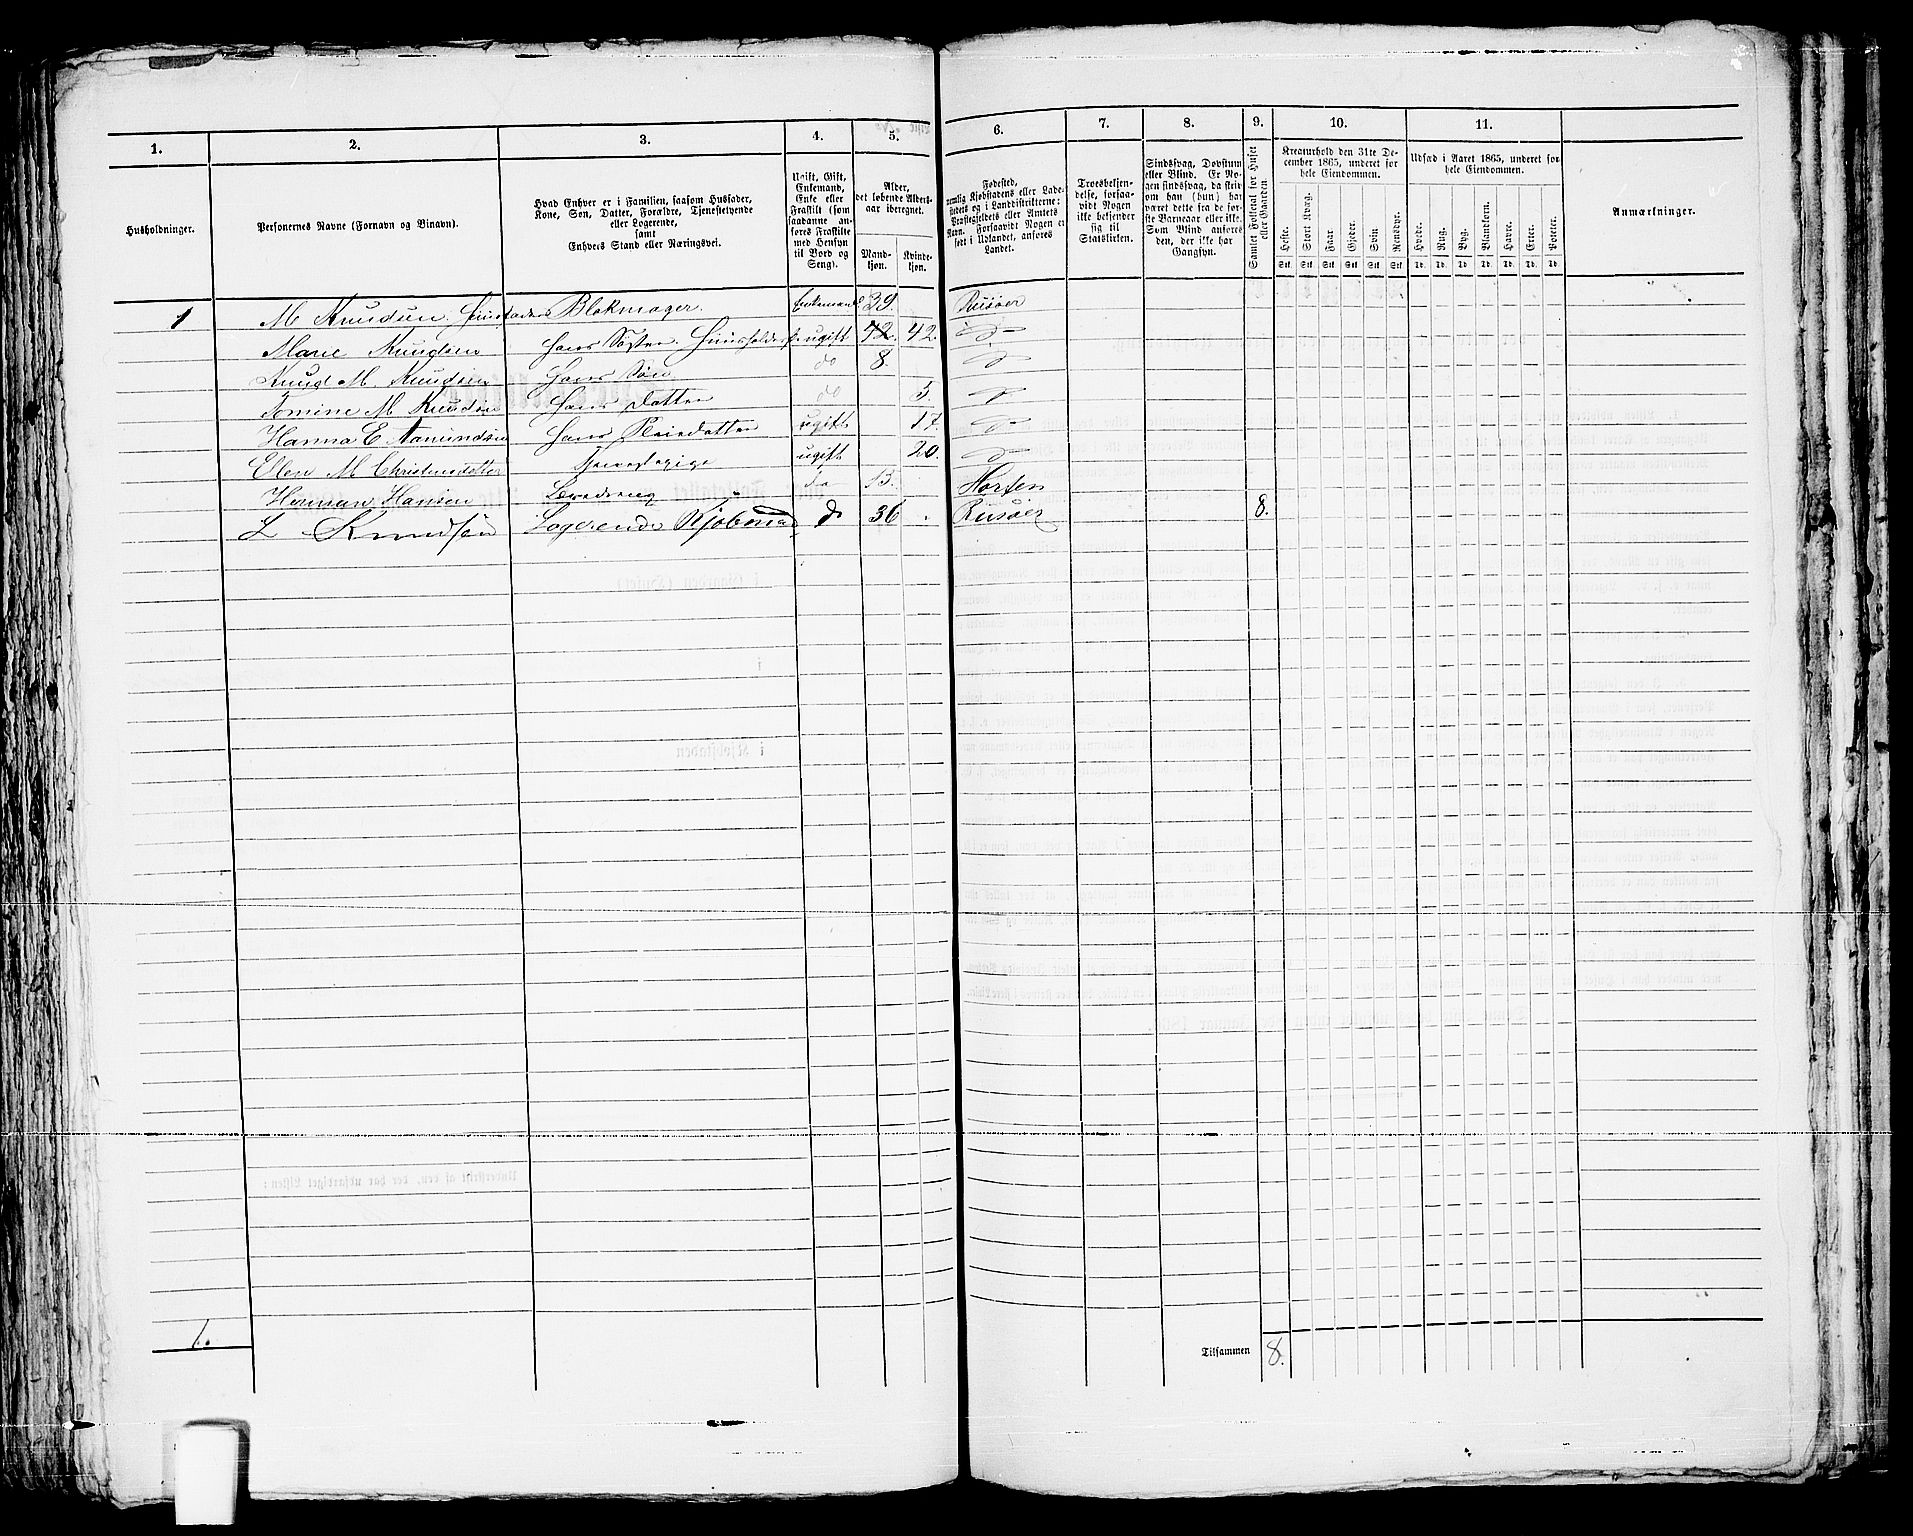 1. 2. 3. 4. 5. 6. 7. 8. 9. 10. 11.
Husholdninger.
Personernes Navne (Fornavn og Binavn).
Hvad Enhver er i Familien, saasom Husfader,
Kone, Søn, Datter, Forældre, Tjenestetyende
eller Logerende,
samt
Enhvers Stand eller Næringsvei.
Ugift, Gift,
Enkemand,
Enke eller
Fraskilt (som
saadanne an-
føres Fraskilte
med Hensyn
til Bord og
Seng).
Alder,
det løbende Alders-
aar iberegnet.
Mand-
kjøn.
Kvinde-
kjøn.
Fødested,
nemlig Kjøbstadens eller Lade-
stedets og i Landdistrikterne:
Præstegjeldets eller Amtets
Navn. Forsaavidt Nogen er
født i Udlandet, anføres
Landet.
Troesbekjen-
delse, forsaa-
vidt Nogen
ikke bekjender
sig til
Statskirken.
Sindssvag, Døvstum
eller Blind. Er No-
gen sindssvag, da skri-
ves om han (hun) har
været dette fra de før-
ste Barneaar eller ikke.
Som Blind anføres
den, der ikke har
Gangsyn.
Samlet Folketal for Huset
eller Gaarden.
Kreaturhold den 31te De-
cember 1865, underet for
hele Eiendommen.
Heste. Stort Kvæg. Faar. Gjeder. Svin. Rensdyr.
Stk. Stk. Stk. Stk. Stk. Stk.
Udsæd i Aaret 1865, underet for
hele Eiendommen.
Hvede. Rug. Byg. Blandkorn. Havre. Erter. Poteter.
Td. Td. Td. Td. Td. Td. Td.
Anmærkninger.
1 M Knudsen Husfader Blokmager. Enkemand 39. Risøer
Marie Knudsen hans Søster, Huusholderske ugift 42. 42. do
Knud M Knudsen Hans Søn do 8. do
Tomine M Knudsen Hans Datter do 5. do
Hanna E Aamundsen Hans Pleiedatter ugift 17. do
Ellen M Christensdatter Tjenestepige ugift 20. do
Herman Hansen Læredreng do 13. Horten
L Knudsen Logerende Kjøbmand do 36 Risøer 8.
1.
Tilsammen 8.